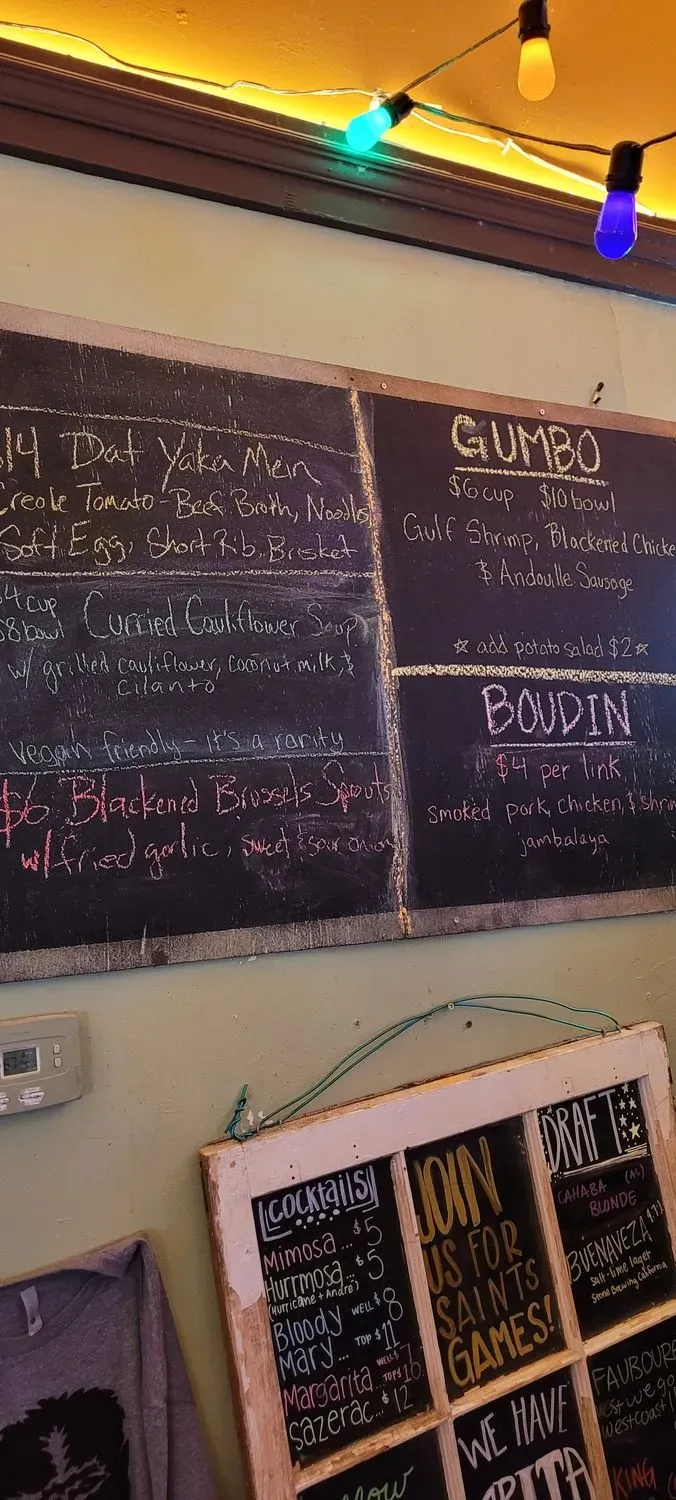 Dat Yaka Mein
Creole Tomato-Beef Broth, Noodles
Soft Egg, Short Rib, Brisket
$4 cup
$8 bowl Curried Cauliflower Soup
w/ grilled cauliflower, coconut milk, &
cilanto
Vegan friendly - it's a rarity
$6 Blackened Brussels Sprouts
w/ fried garlic, sweet & sour onion
GUMBO
$6 cup $10 bowl
Gulf Shrimp, Blackened Chicke
& Andouille Sausage
☆ add potato salad $2 ☆
BOUDIN
$4 per link
smoked pork, chicken, & shrim
jambalaya
Cocktails
Mimosa... $5
Hurrmosa... $5
(Hurricane + Andre)
Bloody WELL $8
Mary... TOP $11
Margarita WELL $7
Sazerac... $12
JOIN
US FOR
SAINTS
GAMES!
DRAFT
CAHABA (AL)
BLONDE
BUENAVEZA
Salt-lime lager
Stone Brewing California
WE HAVE
FAUBOUR
westcoast
KING